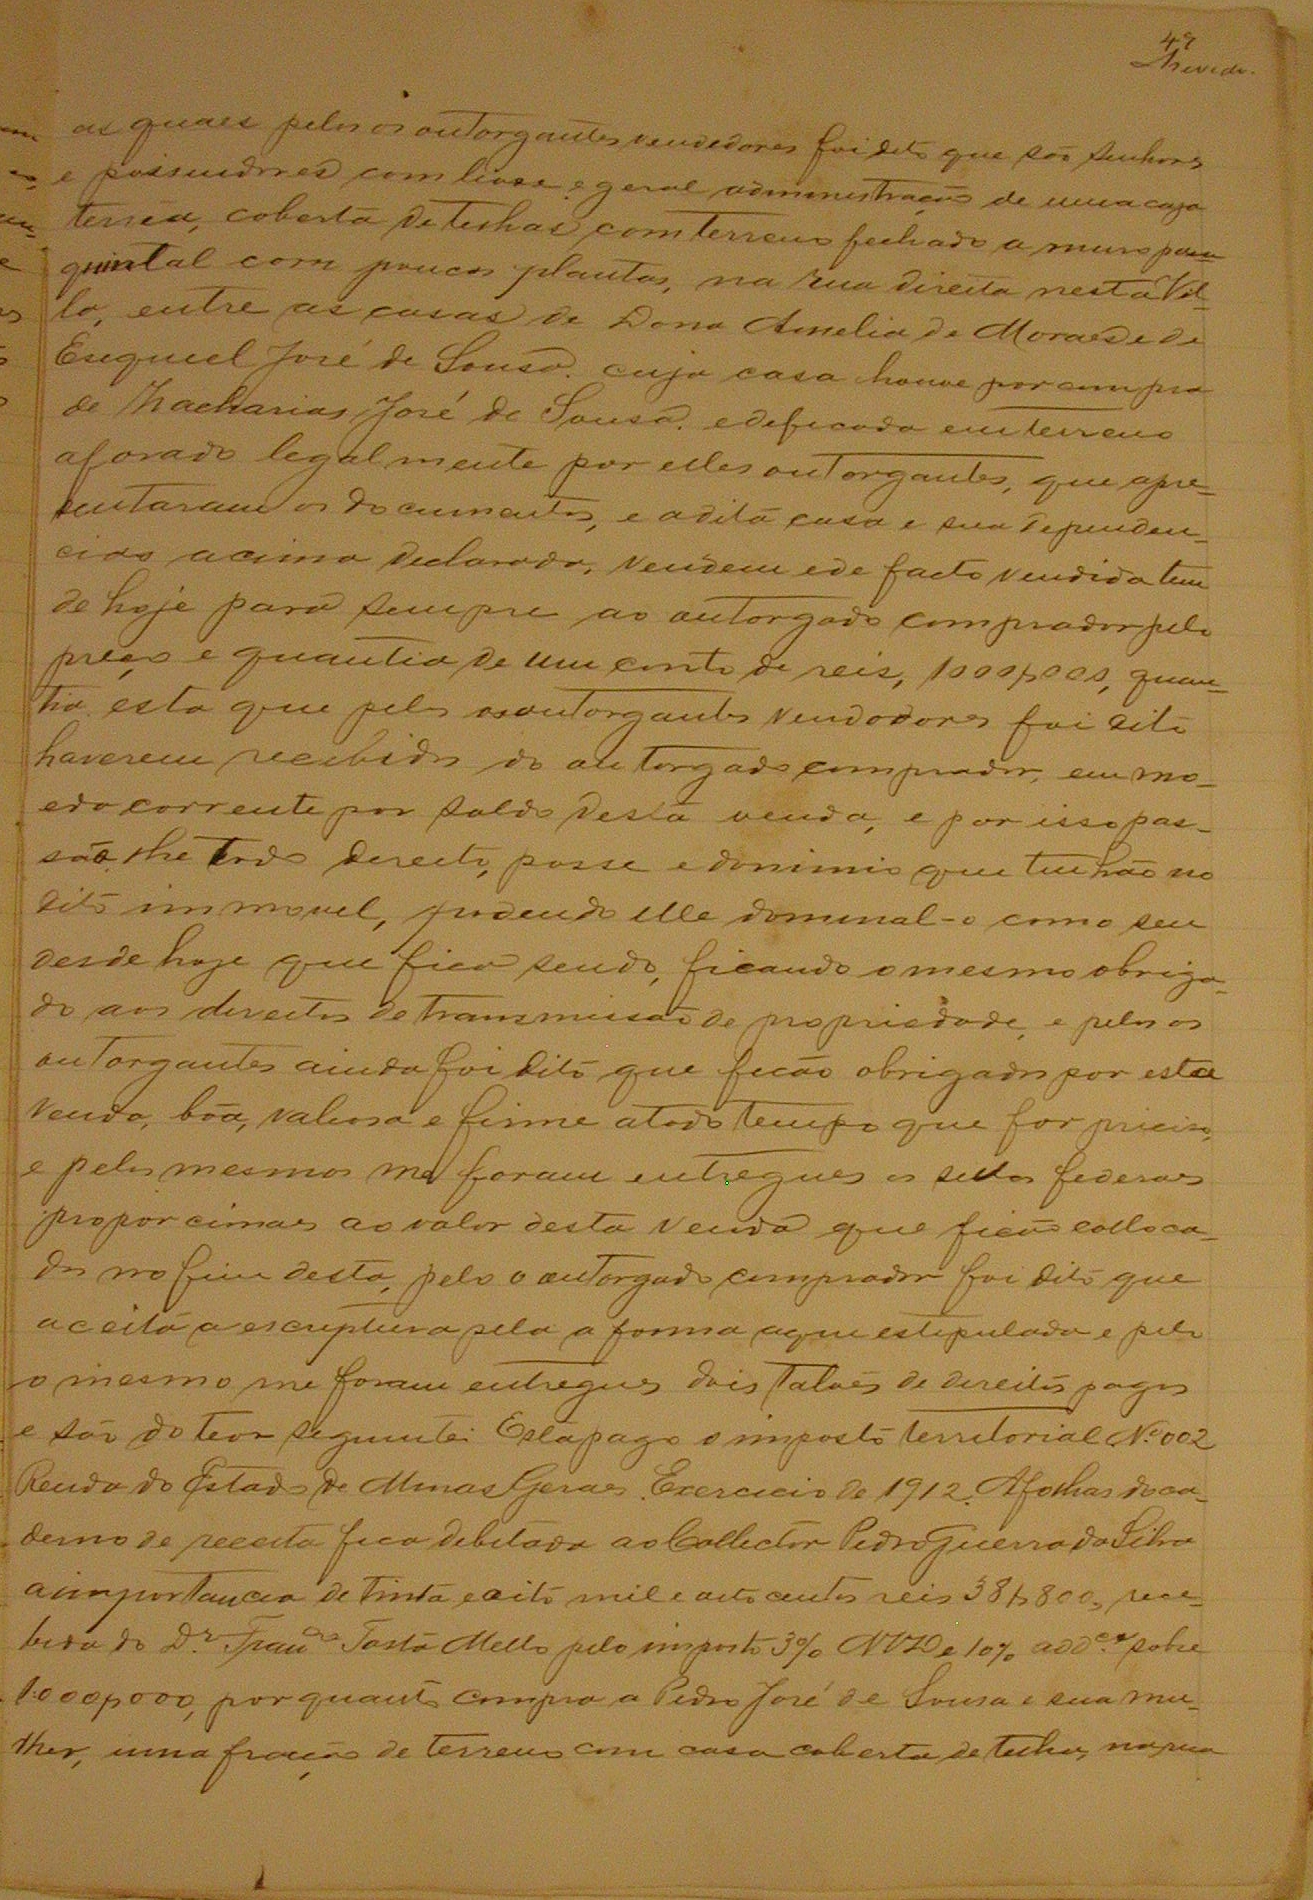 47
Azevedo.
as quaes pelos os outorgantes vendedores foi dito que são senhores
e possuidores com livre e geral administração de uma caza
terrea, coberta de telhas com terreno fechado a muro para
quintal com poucas plantas, na rua direita nesta Vil-
la, entre as casas de Dona Amelia de Moraes e de
Esequiel José de Sousa. cuja casa houve por compra
de Zacharias José de Sousa. edeficada em terreno
aforado legalmente por elles outorgantes, que apre-
sentaram os documentos, e a dita casa e sua dependen-
cias acima declarada, vendem e de facto vendida tem
de hoje para sempre ao outorgado comprador pelo
preço e quantia de um conto de reis, 1000$000, quan-
tia esta que pelos os outorgantes vendodores foi dito
haverem recebido do outorgado comprador, em mo-
eda corrente por saldo desta venda, e por isso pas-
são lhe todo direito, posse e dominio que tinhão no
dito immovel, podendo elle dominal-o como seu
desde hoje que fica sendo, ficando o mesmo obriga-
do aos direitos de transmissão de propriedade, e pelos os
outorgantes ainda foi dito que ficão obrigados por esta
venda, bôa, valiosa e firme a todo tempo que for preciso,
e pelos mesmos me foram entregues os sellos federaes
proporcionaes ao valor desta venda que ficão colloca-
dos no fim desta, pelo o outorgado comprador foi dito que
aceita a escriptura pela a forma aqui estipulada e pelo
o mesmo me foram entregues dois talões de direitos pagos
e são do teor seguinte: Está pago o imposto territorial Nº 002
Renda do Estado de Minas Geraes. Exercicio de 1912. A folhas do ca-
derno de receita fica debitada ao Collector Pedro Guerra da Silva
a importancia de trinta e oito mil e oito centos reis 38$800, rece-
bida do Dr. Franco Tostã Mello pelo imposto 3% NVD e 10% addes sobre
1.000$000, por quanto compra a Pedro José de Sousa e sua mu-
lher, uma fração de terreno com casa coberta de telha, na rua